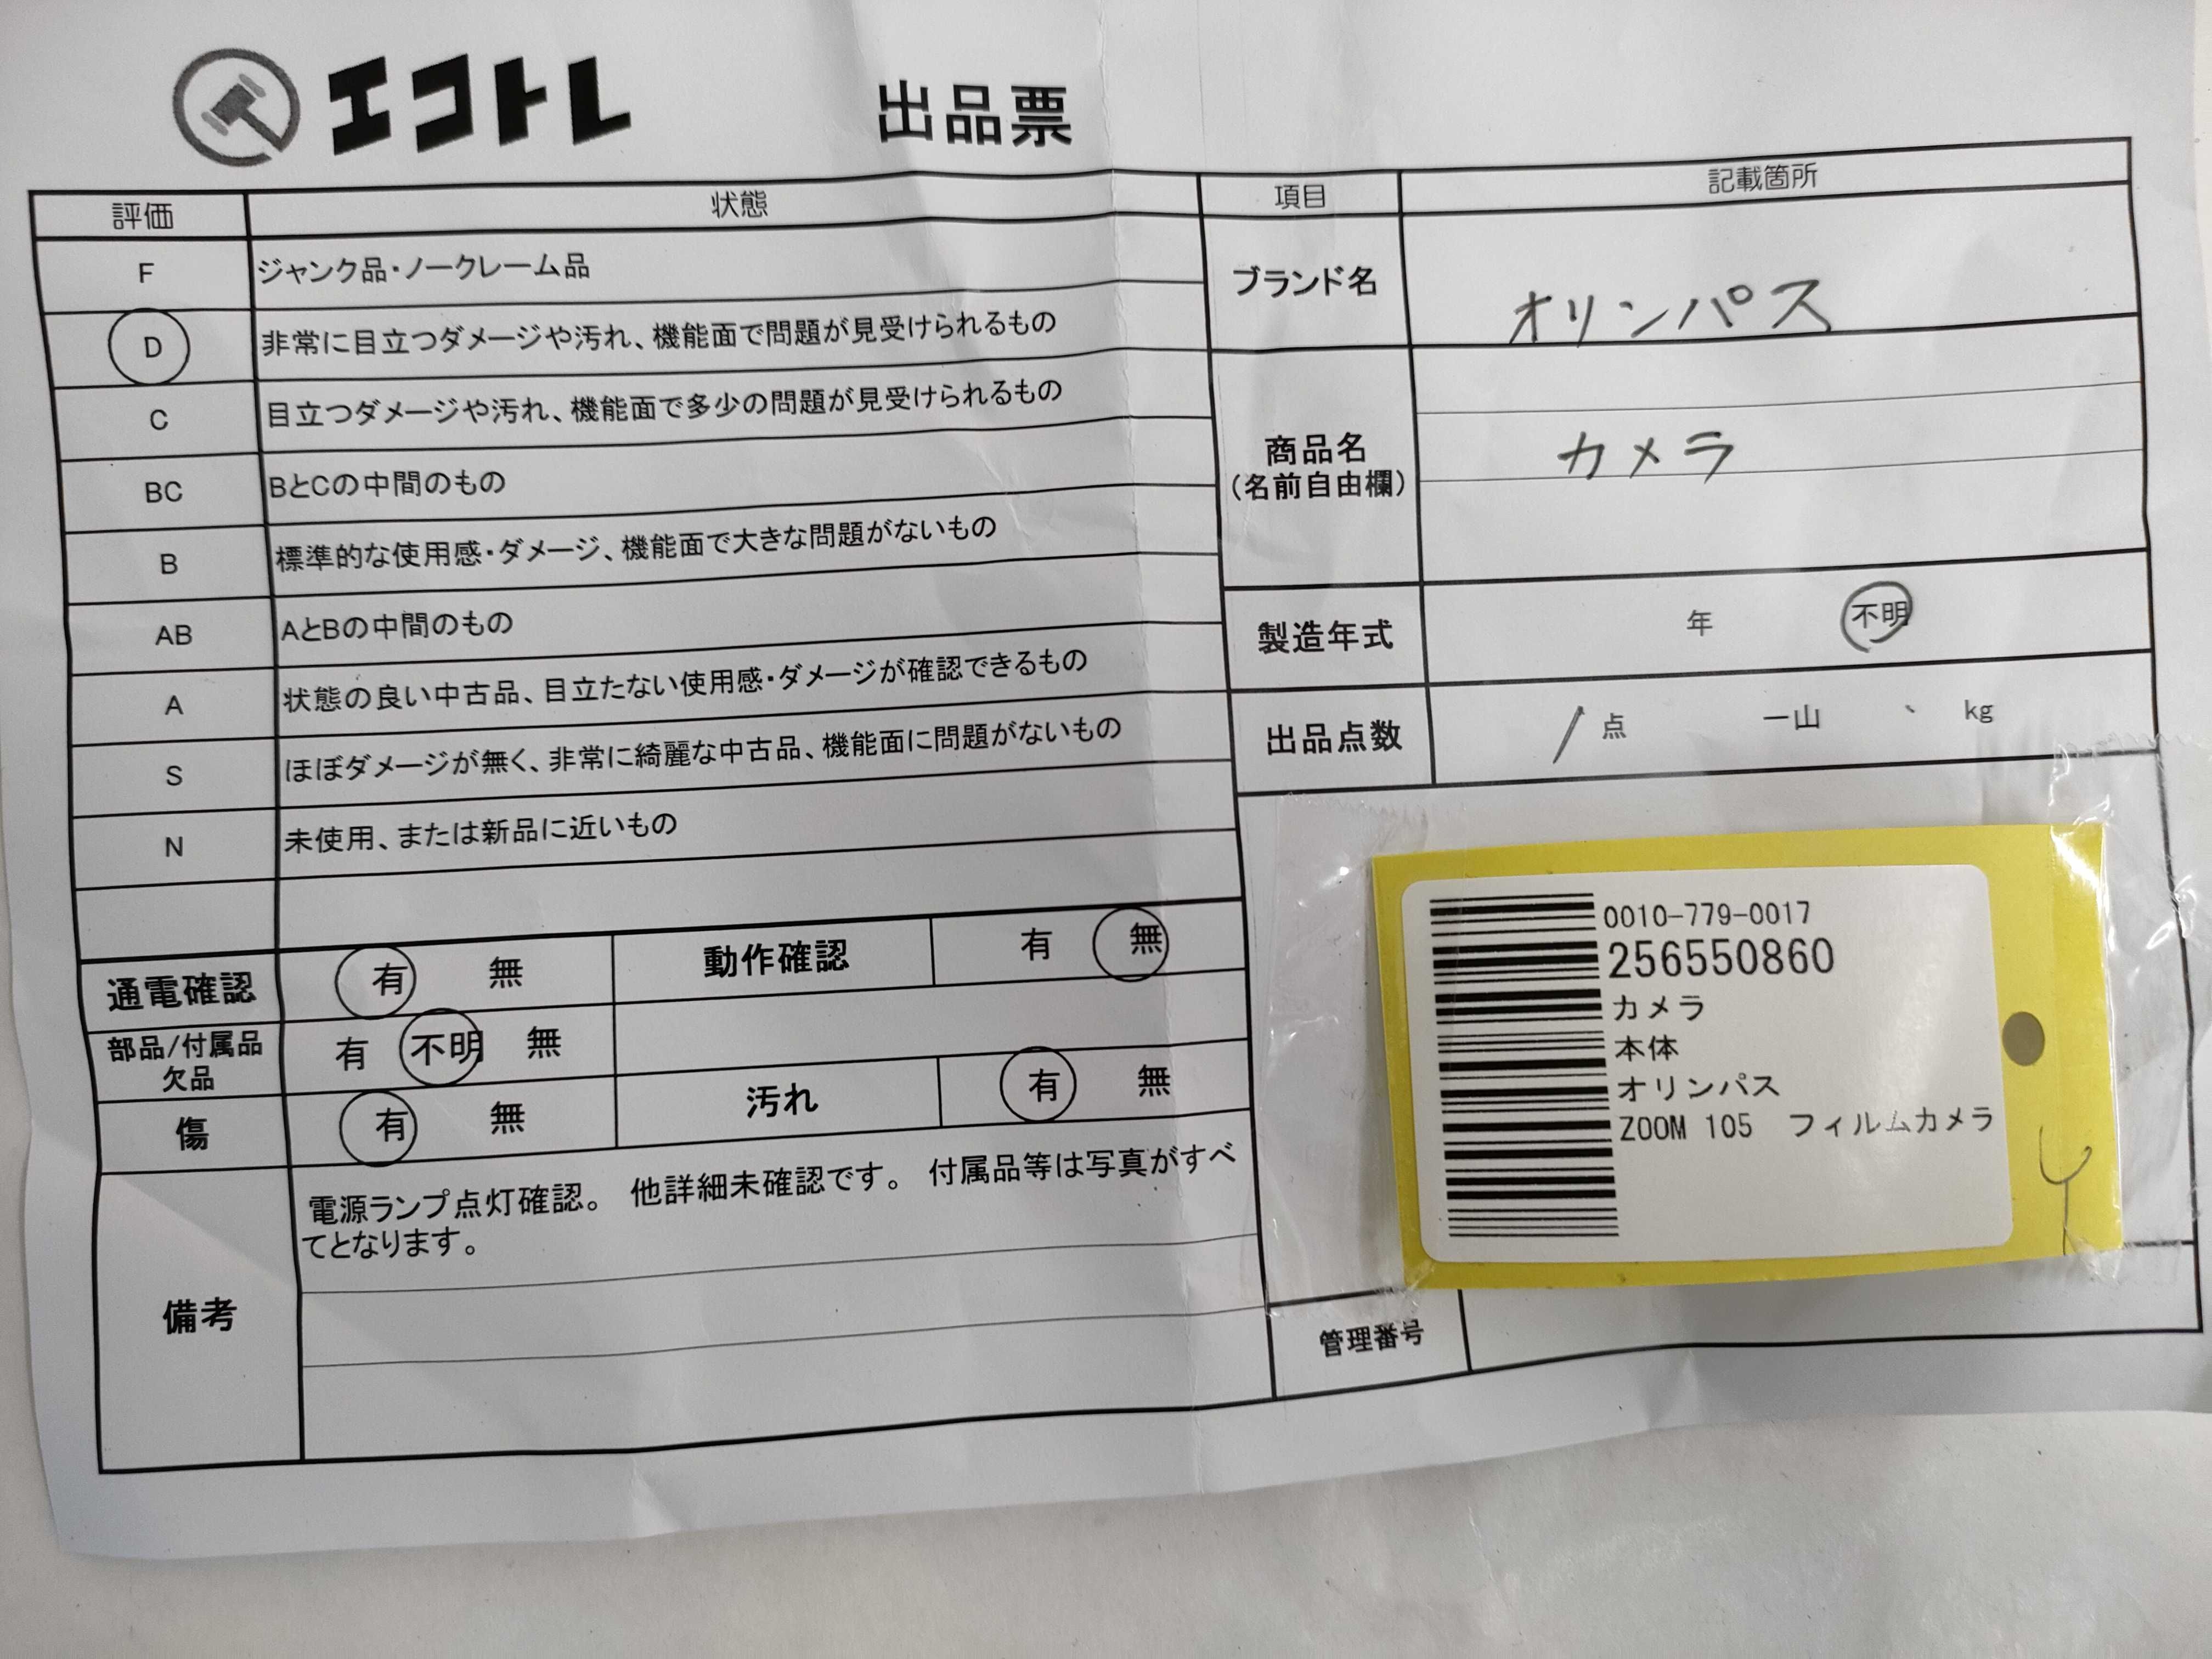 エコトレ
出品票
評価 状態
F ジャンク品・ノークレーム品
D 非常に目立つダメージや汚れ、機能面で問題が見受けられるもの
C 目立つダメージや汚れ、機能面で多少の問題が見受けられるもの
BC BとCの中間のもの
B 標準的な使用感・ダメージ、機能面で大きな問題がないもの
AB AとBの中間のもの
A 状態の良い中古品、目立たない使用感・ダメージが確認できるもの
S ほぼダメージが無く、非常に綺麗な中古品、機能面に問題がないもの
N 未使用、または新品に近いもの
通電確認 有 無 動作確認 有 無
部品/付属品
欠品 有 不明 無
傷 有 無 汚れ 有 無
備考
電源ランプ点灯確認。 他詳細未確認です。 付属品等は写真がすべ
てとなります。
項目 記載箇所
ブランド名 オリンパス
商品名
(名前自由欄) カメラ
製造年式 年 不明
出品点数 / 点 一山 、 kg
0010-779-0017
256550860
カメラ
本体
オリンパス
ZOOM 105 フィルムカメラ
管理番号